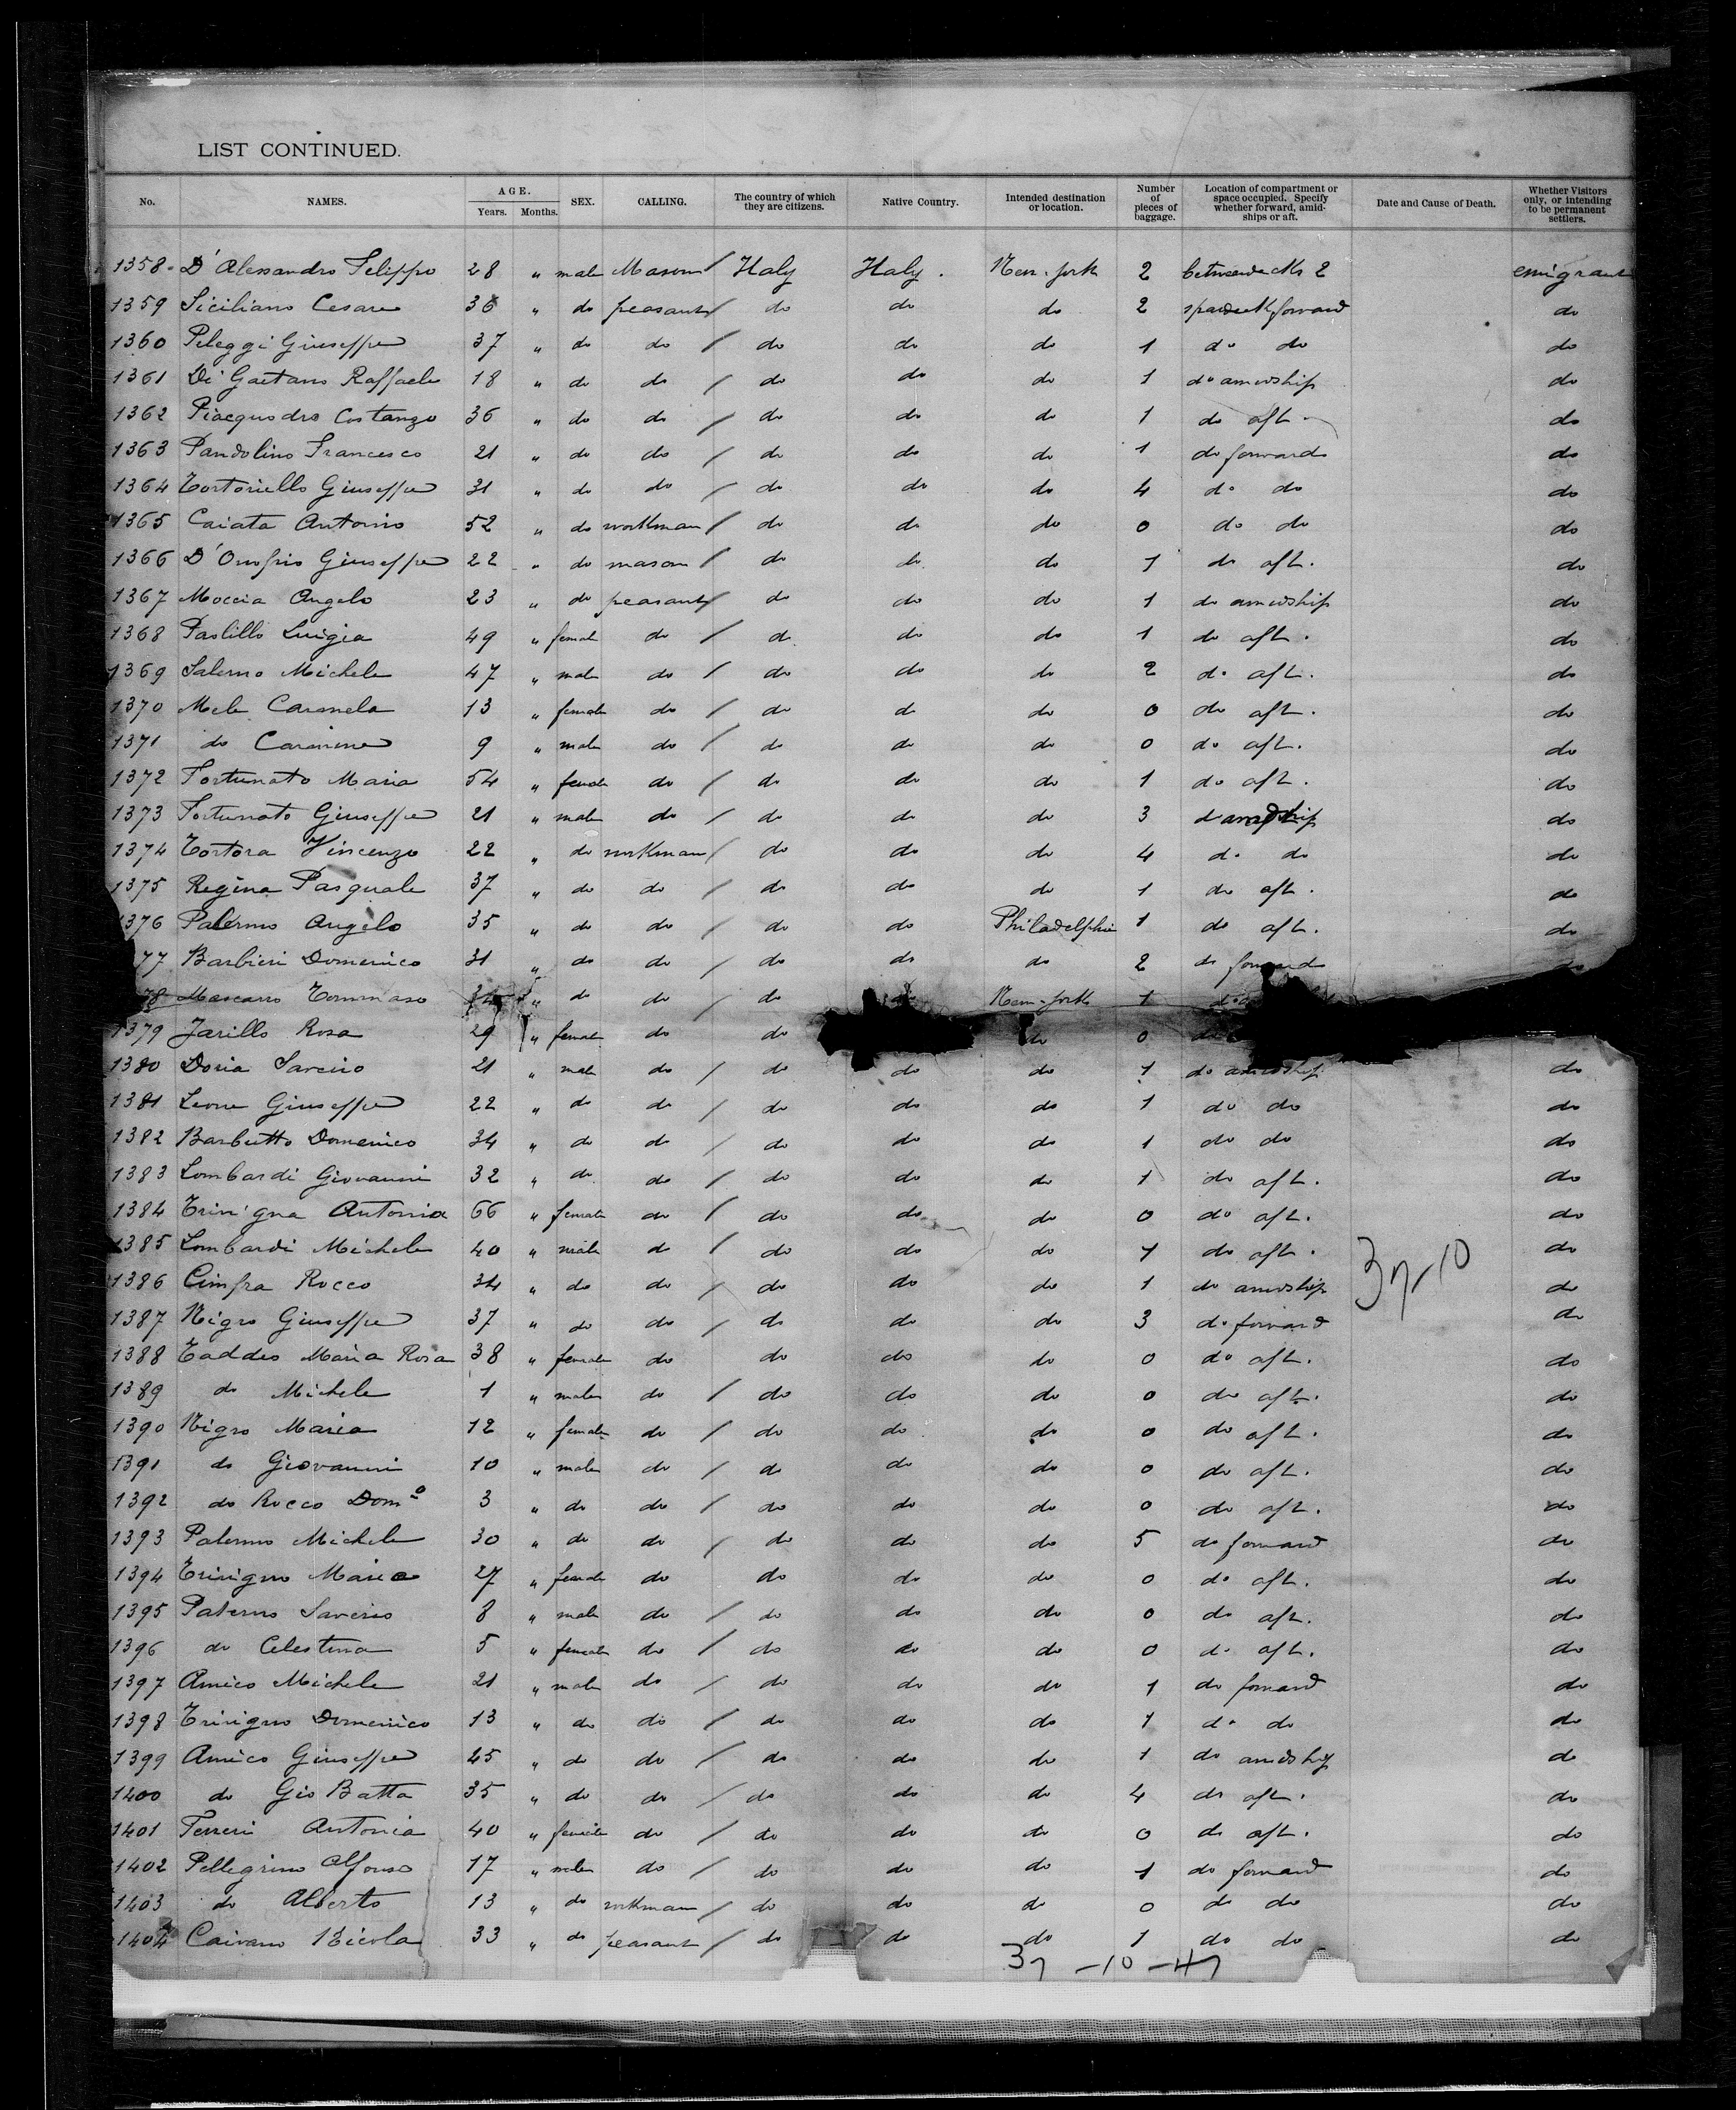 LIST CONTINUED.
No. NAMES. AGE. Years. Months. SEX. CALLING. The country of which they are citizens. Native Country. Intended destination or location. Number of pieces of baggage. Location of compartment or space occupied. Specify whether forward, amidships or aft. Date and Cause of Death. Whether Visitors only, or intending to be permanent settlers.
1358 D'Alessandro Felippo 28 " male Mason / Italy Italy. New-york 2 betweendecks 2 emigrant
1359 Siciliano Cesare 36 " do peasant / do do do 2 spardeck forward do
1360 Peleggi Giuseppe 37 " do do / do do do 1 do do do
1361 Di Gaetano Raffaele 18 " do do / do do do 1 do amidship do
1362 Piacquadro Costanzo 36 " do do / do do do 1 do aft. do
1363 Pandolino Francesco 21 " do do / do do do 1 do forward do
1364 Tortoriello Giuseppe 31 " do do / do do do 4 do do do
1365 Caiata Antonio 52 " do workman / do do do 0 do do do
1366 D'Onofrio Giuseppe 22 " do mason / do do do 1 do aft. do
1367 Moccia Angelo 23 " do peasant / do do do 1 do amidship do
1368 Paolillo Luigia 49 " female do / do do do 1 do aft. do
1369 Salerno Michele 47 " male do / do do do 2 do aft. do
1370 Mele Carmela 13 " female do / do do do 0 do aft. do
1371 do Carmine 9 " male do / do do do 0 do aft. do
1372 Fortunato Maria 54 " female do / do do do 1 do aft. do
1373 Fortunato Giuseppe 21 " male do / do do do 3 do amidship do
1374 Tortora Vincenzo 22 " do workman / do do do 4 do do do
1375 Regina Pasquale 37 " do do / do do do 1 do aft. do
1376 Palermo Angelo 35 " do do / do do Philadelphia 1 do aft. do
77 Barbieri Domenico 31 " do do / do do do 2 do forward do
78 Mascarro Tommaso 34 " do do / do do New-york 1 do
1379 Jarillo Rosa 29 " female do do do 0 do
1380 Doria Saverio 21 " male do / do do do 1 do amidship do
1381 Leone Giuseppe 22 " do do / do do do 1 do do do
1382 Barbutto Domenico 34 " do do / do do do 1 do do do
1383 Lombardi Giovanni 32 " do do / do do do 1 do aft. do
1384 Trivigna Antonia 66 " female do / do do do 0 do aft. do
1385 Lombardi Michele 40 " male do / do do do 1 do aft. do
1386 Cimfra Rocco 34 " do do / do do do 1 do amidship 37-10 do
1387 Nigro Giuseppe 37 " do do / do do do 3 do forward do
1388 Taddeo Maria Rosa 38 " female do do do do 0 do aft. do
1389 do Michele 1 " male do / do do do 0 do aft. do
1390 Nigro Maria 12 " female do / do do do 0 do aft. do
1391 do Giovanni 10 " male do / do do do 0 do aft. do
1392 do Rocco Domº 3 " do do / do do do 0 do aft. do
1393 Palermo Michele 30 " do do / do do do 5 do forward do
1394 Trivigno Maria 27 " female do do do do 0 do aft. do
1395 Palermo Saverio 8 " male do / do do do 0 do aft. do
1396 do Celestina 5 " female do / do do do 0 do aft. do
1397 Amico Michele 21 " male do / do do do 1 do forward do
1398 Trivigno Domenico 13 " do do / do do do 1 do do do
1399 Amico Giuseppe 25 " do do / do do do 1 do amidship do
1400 do Gio Batta 35 " do do / do do do 4 do aft. do
1401 Ferreri Antonia 40 " female do / do do do 0 do aft. do
1402 Pellegrino Alfonso 17 " male do / do do do 1 do forward do
1403 do Alberto 13 " do workman / do do do 0 do do do
1404 Caivano Nicola 33 " do peasant / do do do 1 do do do
37 -10 -47